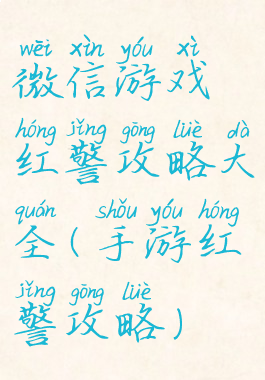 wēi xìn yóu xì
微信游戏
hóng jǐng gōng lüè dà
红警攻略大
quán shǒu yóu hóng
全(手游红
jǐng gōng lüè
警攻略)